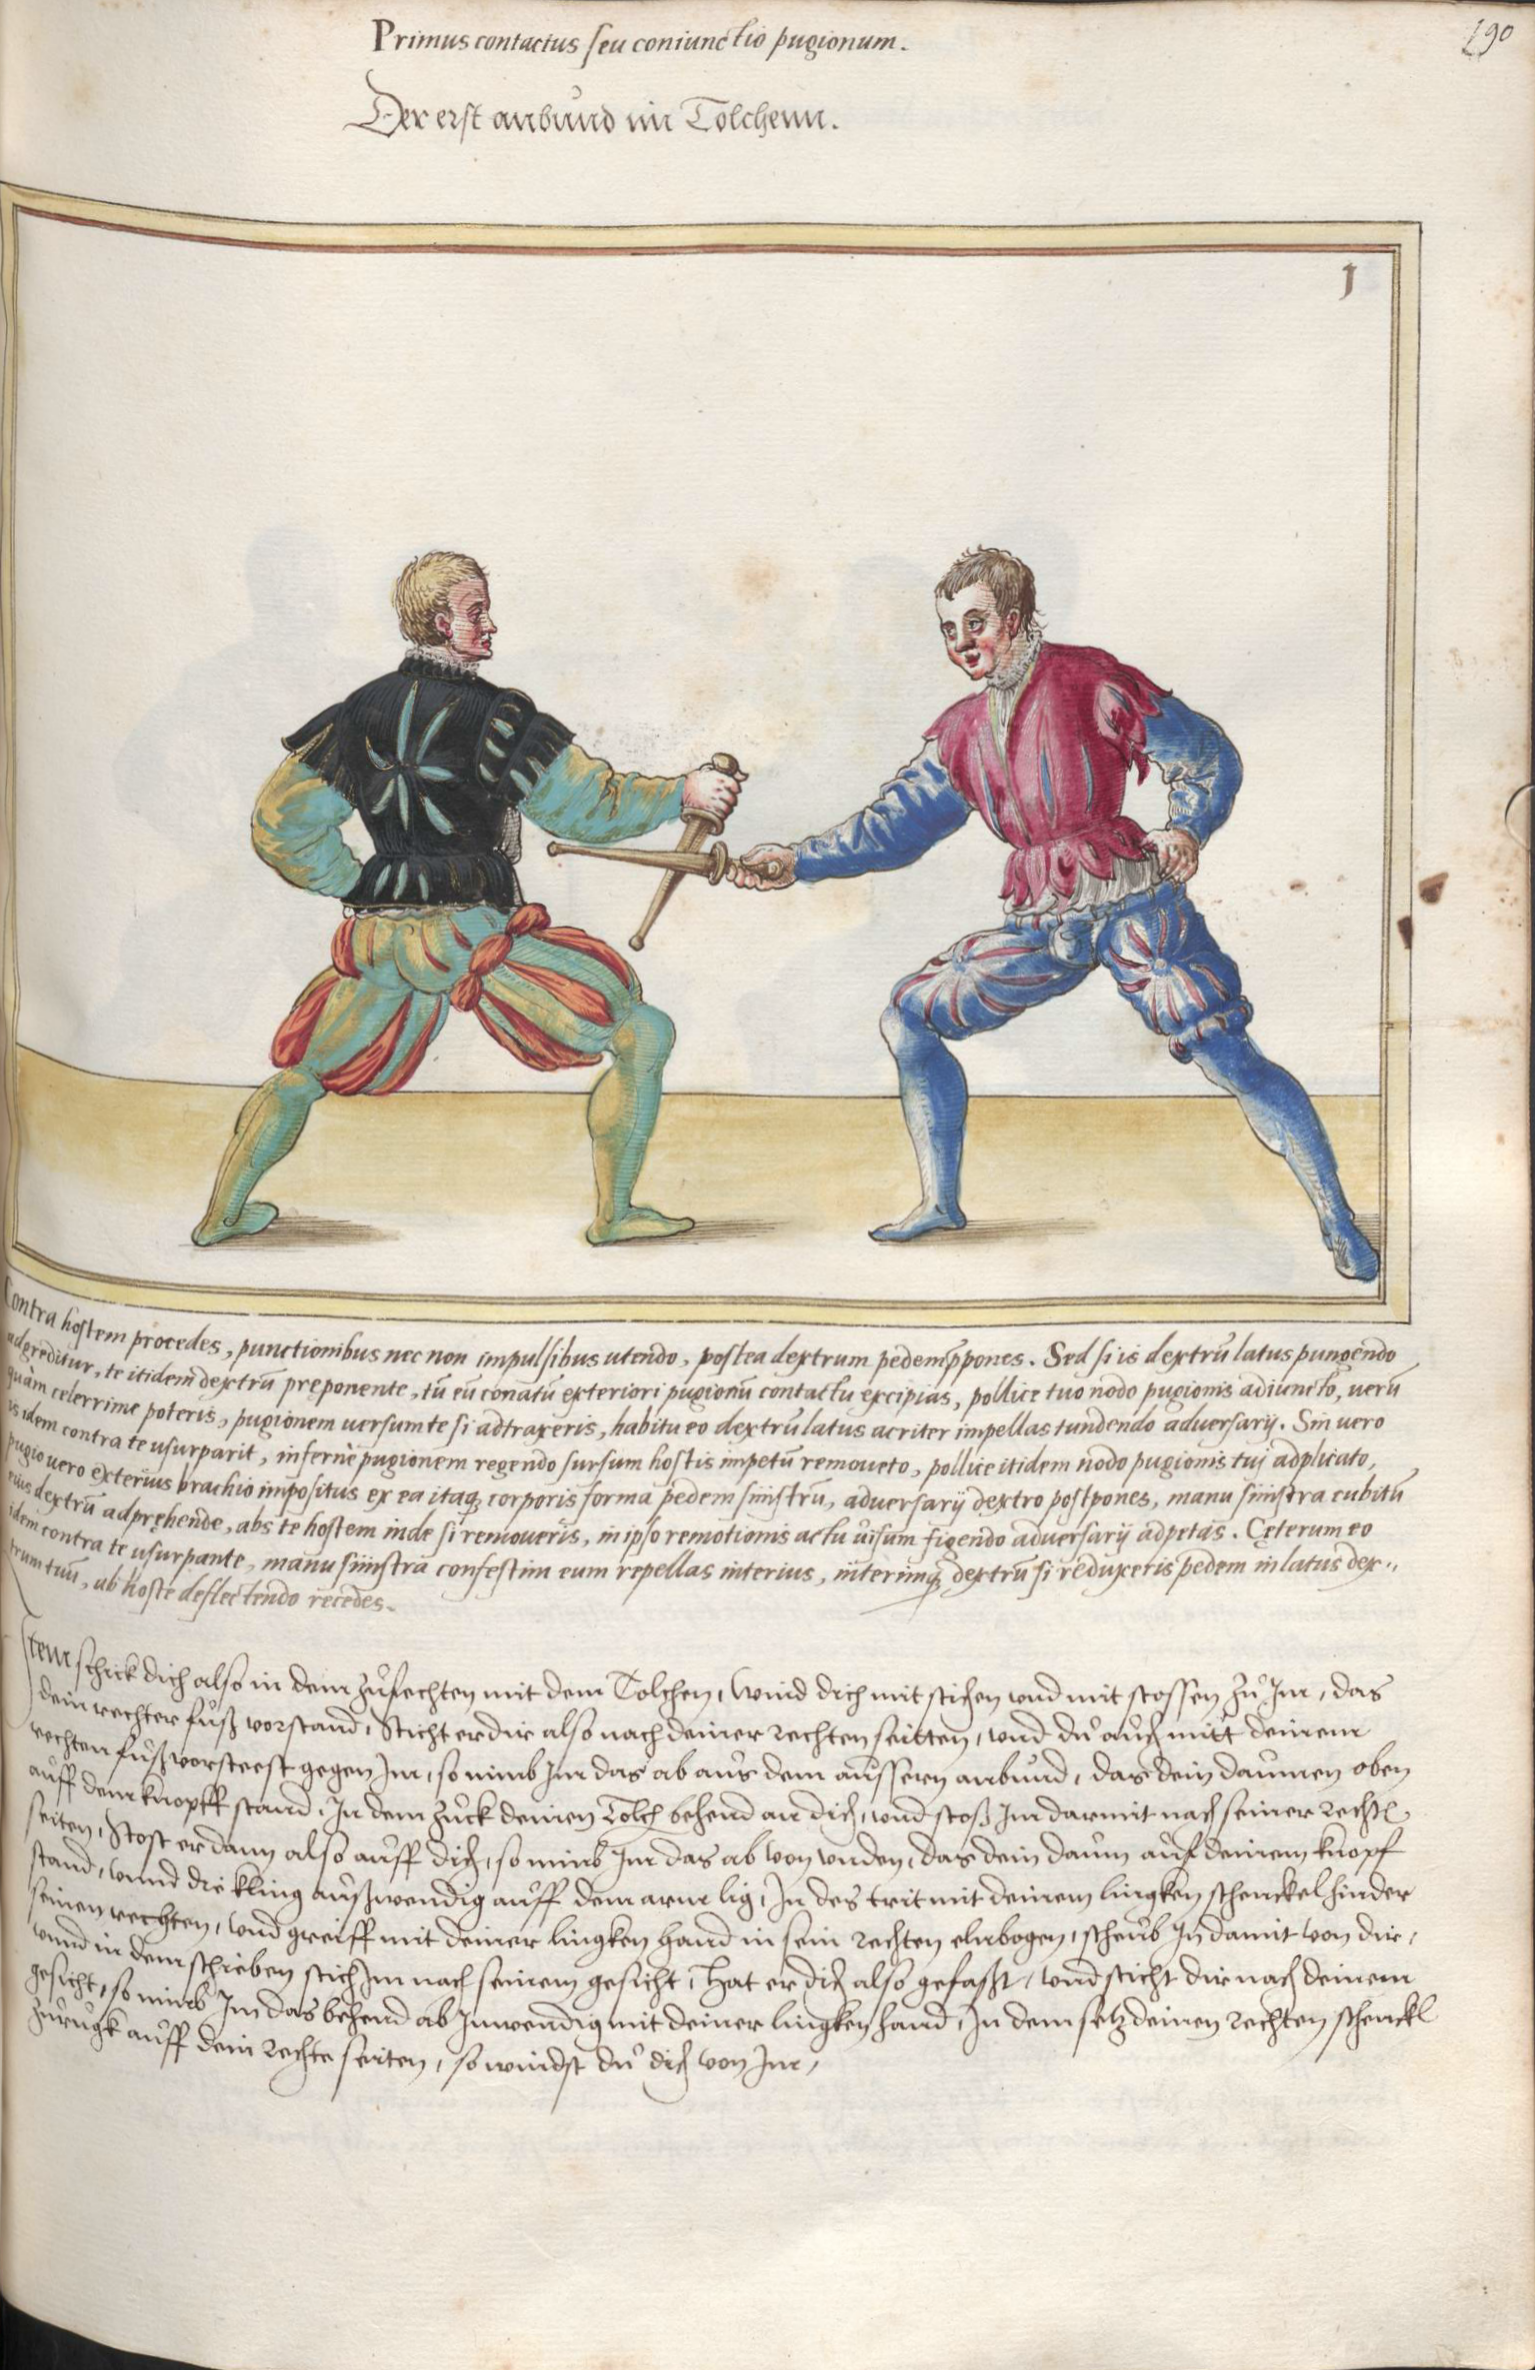 Primus contactus seu coniunctio pugionum.
190
Der erst anbund im Tolchenn.
1
Contra hostem procedes, punctionibus nec non impulsibus utendo, postea dextrum pedem p̄pones. Sed si is dextrū latus pungendo
adgreditur, te itidem dextrū preponente, tū eū conatū exteriori pugionū contactu excipias, pollice tuo nodo pugionis adiuncto, uerū
quàm celerrime poteris, pugionem uersum te si adtraxeris, habitu eo dextrū latus acriter impellas tundendo adversarij. Sin uero
is idem contra te usurparit, infernè pugionem regendo sursum hostis impetū remoueto, pollice itidem nodo pugionis tuj adplicato,
pugio uero exterius brachio impositus ex ea itaq; corporis forma pedem sinistrū, adversarij dextro postpones, manu sinistra cubitū
eius dextrū adpręhende, abs te hostem inde si remoueris, in ipso remotionis actu uisum figendo adversarij adpetas. Cęterum eo
idem contra te usurpante, manu sinistra confestim eum repellas interius, interimq; dextrū si reduxeris pedem in latus dex-
trum tuū, ab hoste deflectendo recedes.
Item schick dich also in dem zufechten mit dem Tolchen, wind dich mit stichen und mit stossen zu Im, das
dein rechter fuß vorstand, Sticht er dir also nach deiner rechten seitten, und du auch mitt deinem
rechten fuß vorsteest gegen Im, so nimb Im das ab aus dem aussern anbund, das dein daumen oben
auff dem knopff stand, In dem zuck deinen Tolch behend an dich, und stoß Im darmit nach seiner rechtē
seiten, Stost er dann also auff dich, so nimb Im das ab von unden, das dein daum auf deinem knopf
stand, unnd die kling außwendig auff dem arm lig, In des trit mit deinem lingken schenckel hinder
seinen rechten, und greiff mit deiner lingken hand in sein rechten elnbogen, scheub In damit von dir,
unnd in dem schieben stich Im nach seinem gesicht, Hat er dich also gefaßt, und sticht dir nach deinem
gesicht, so nimb Im das behend ab Inwendig mit deiner lingken hand, In dem setz deinen rechten schenckl
zurugk auff dein rechte seiten, so windst du dich von Im,